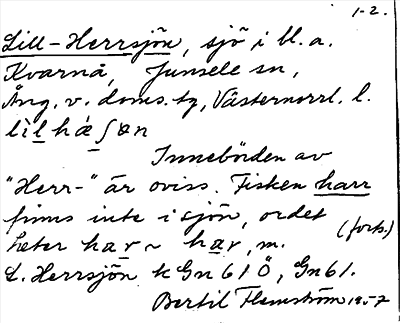 1-2.
Lill-Herrsjön, sjö i bl.a.
Kvarnå, Junsele sn,
Ång. v. doms. tg, Västernorrl. l.
Innebörden av
"Herr-" är oviss. Fisken harr
finns inte i sjön, ordet
heter har ~ har, m. (forts.)
L. Herrsjön k Gn 61 Ö, Gn 61.
Bertil Flemström 1957